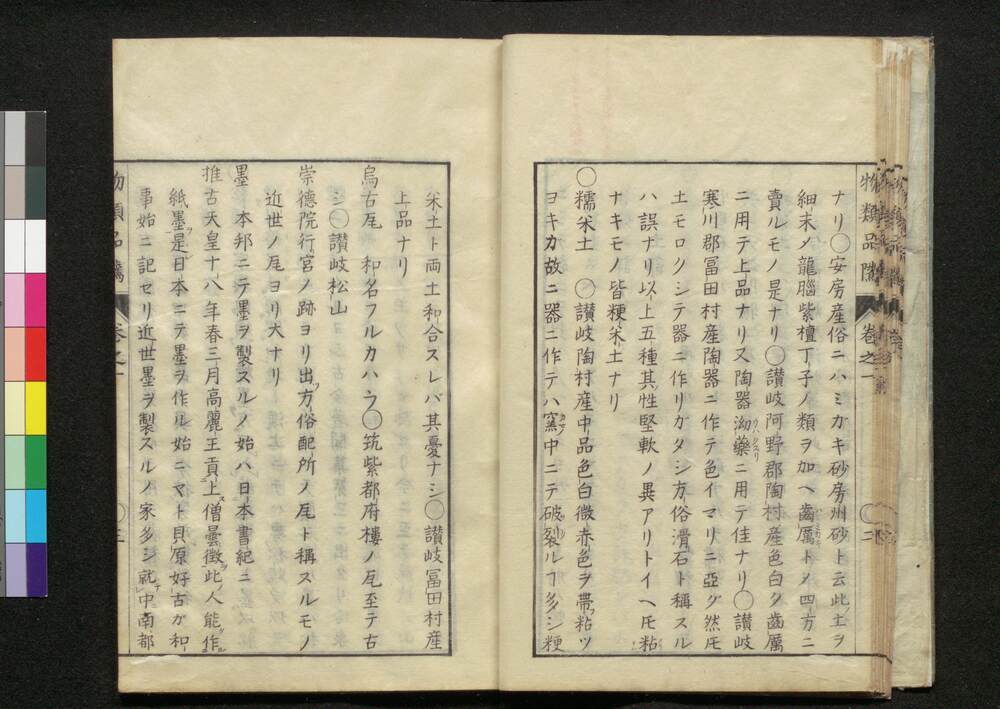 物類品隲 卷之一 〇二
ナリ〇安房産俗ニハミガキ砂房州砂ト云此ノ土ヲ
細末ノ龍腦紫檀丁子ノ類ヲ加ヘ齒厲トメ四方ニ
賣ルモノ是ナリ〇讃岐阿野郡陶村産色白ク齒厲
ニ用テ上品ナリ又陶器泑藥ニ用テ佳ナリ〇讃岐
寒川郡冨田村産陶器ニ作テ色イマリニ亞グ然𪜈
土モロクシテ器ニ作リガタシ方俗滑石ト稱スル
ハ誤ナリ以上五種其性堅軟ノ異アリトイヘ𪜈粘
ナキモノ皆粳米土ナリ
〇糯米土 〇讃岐陶村産中品色白微赤色ヲ帶粘ツ
ヨキカ故ニ器ニ作テハ窯中ニテ破裂ルヿ多シ粳
米土ト両土和合スレバ其憂ナシ〇讃岐冨田村産
上品ナリ
烏古瓦 和名フルカハラ〇筑紫都府樓ノ瓦至テ古
シ〇讃岐松山
崇德院行宮ノ跡ヨリ出ツ方俗配所ノ瓦ト稱スルモノ
近世ノ瓦ヨリ大ナリ
墨 本邦ニテ墨ヲ製スルノ始ハ日本書紀ニ
推古天皇十八年春三月高麗王貢上僧曇徴此ノ人能作
紙墨ヲ是日本ニテ墨ヲ作ル始ニマト貝原好古ガ和
事始ニ記セリ近世墨ヲ製スルノ家多シ就中南都
物類品隲 卷之一 〇三